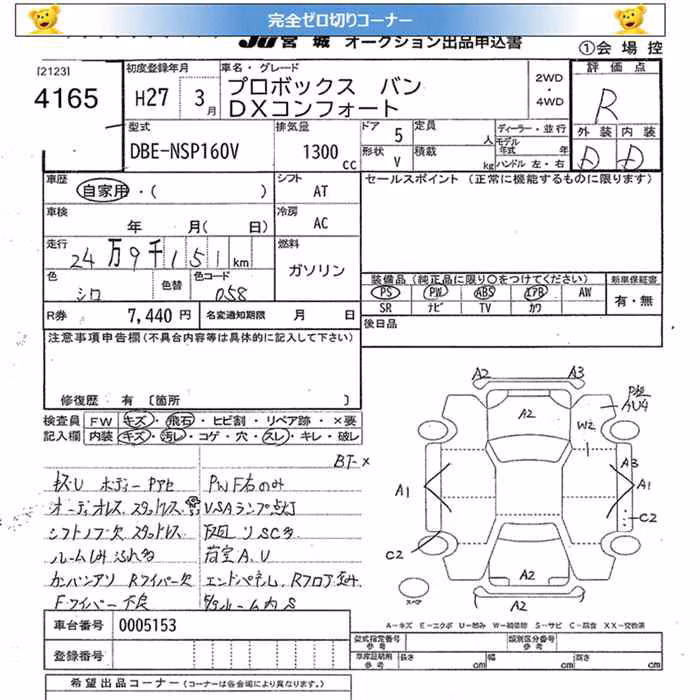 完全ゼロ切りコーナー
JU宮城 オークション出品申込書
①会場控
[2123]
4165
初度登録年月
H27 3月
車名・グレード
プロボックス バン
DXコンフォート
2WD
・
4WD
評価点
R
外装 内装
D D
型式
DBE-NSP160V
排気量
1300cc
ドア 5
形状 V
定員 人
積載 kg
ディーラー・並行
モデル年式 年
ハンドル 左・右
車歴
自家用・( )
シフト
AT
セールスポイント (正常に機能するものに限ります)
車検
年 月( 日)
冷房
AC
走行
24万9千151km
燃料
ガソリン
色
シロ
色替
色コード
058
装備品(純正品に限り○をつけてください)
新車保証書
PS PW ABS エアB AW
SR ナビ TV カワ
有・無
R券 7,440円
名変通知期限 月 日
後日品
注意事項申告欄(不具合内容等は具体的に記入して下さい)
修復歴 有 〔箇所 〕
検査員
記入欄
FW キズ・飛石・ヒビ割・リペア跡・×要
内装 キズ・汚レ・コゲ・穴・スレ・キレ・破レ
BT-×
キズ・U ボディーPアセ
PWF右のみ
オーディオレス スタットレス
VSAランプ点灯
シフトノブ欠
ルームしみ
荷室A,U
Rワイパー欠
エンドパネル,Rフロア歪み
F・ワイパー不良
A2 A3
A2
W2
A3
A1 A1
C2
C2
A2
A2
スペア
A-キズ E-エクボ U-凹み W-補修跡 S-サビ C-腐食 XX-交換済
車台番号 0005153
登録番号
型式指定番号
参考
類別区分番号
参考
車庫証明用
参考
長さ cm 幅 cm 高さ cm
希望出品コーナー (コーナーは各会場により異なります。)